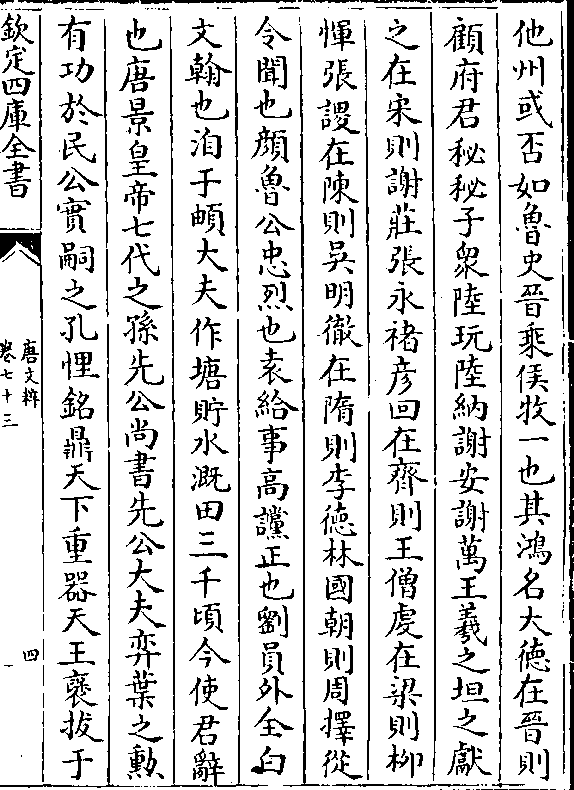 他州或否如魯史晉乗侯牧一也其鴻名大徳在晉則
顧府君秘秘子衆陸玩陸納謝安謝萬王羲之坦之獻
之在宋則謝莊張永褚彦回在齊則王僧虔在梁則柳
惲張謖在陳則吳明徹在隋則李徳林國朝則周擇從
令聞也顔魯公忠烈也袁給事高讜正也劉員外全白
文翰也洎于頔大夫作塘貯水溉田三千頃今使君辭
也唐景皇帝七代之孫先公尚書先公大夫弈葉之勲
有功於民公實嗣之孔悝銘鼎天下重器天王襃拔于
欽定四庫全書
唐文粹
卷七十三
四